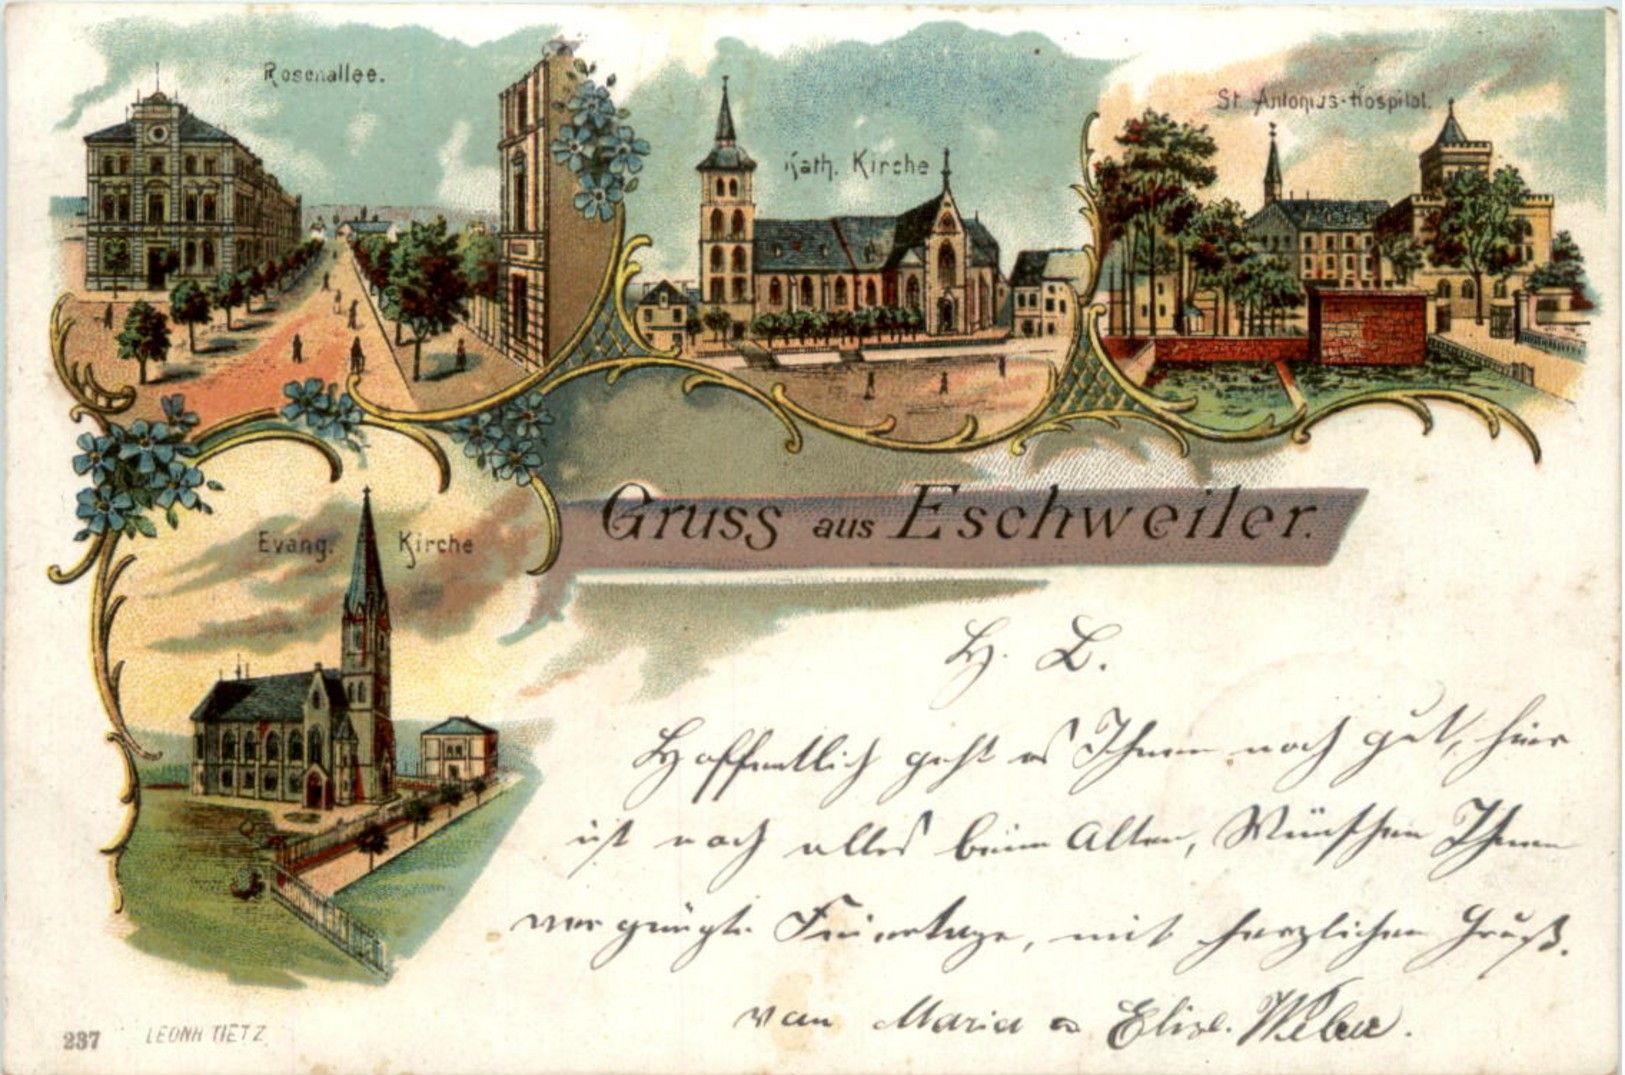 Rosenallee.
Kath. Kirche
St. Antonius-Hospital.
Evang. Kirche
Gruss aus Eschweiler.
H. L.
Hoffentlich geht es Ihnen noch gut, hier
ist noch alles beim Alten, Wünschen Ihnen
vergnügte Feiertage, mit herzlichen Gruß.
von Maria u Elise. Weber.
237 LEONH TIETZ